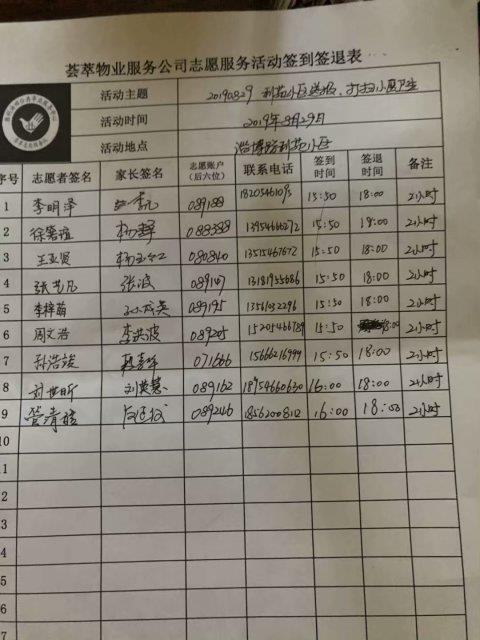 荟萃物业服务公司志愿服务活动签到签退表
活动主题 20190829 利苑小区送报、打扫小区卫生
活动时间 2019年8月29日
活动地点 淄博路利苑小区
序号 志愿者签名 家长签名 志愿账户（后六位） 联系电话 签到时间 签退时间 备注
1 李明泽 089188 15:50 18:00 2小时
2 徐 杨 088388 13954666272 15:50 18:00 2小时
3 王亚贤 080840 13515467672 15:50 18:00 2小时
4 张艺凡 张波 089147 13181955686 15:50 18:00 2小时
5 李梓萌 089195 13561032296 15:50 18:00 2小时
6 周文浩 李洪波 089205 15205466789 15:50 18:00 2小时
7 孙浩 071666 15666216999 15:50 18:00 2小时
8 刘世昕 刘英慧 089162 18954660630 16:00 18:00 2小时
9 管清 089246 16:00 18:00 2小时
10
11
2
3
4
5
6
7